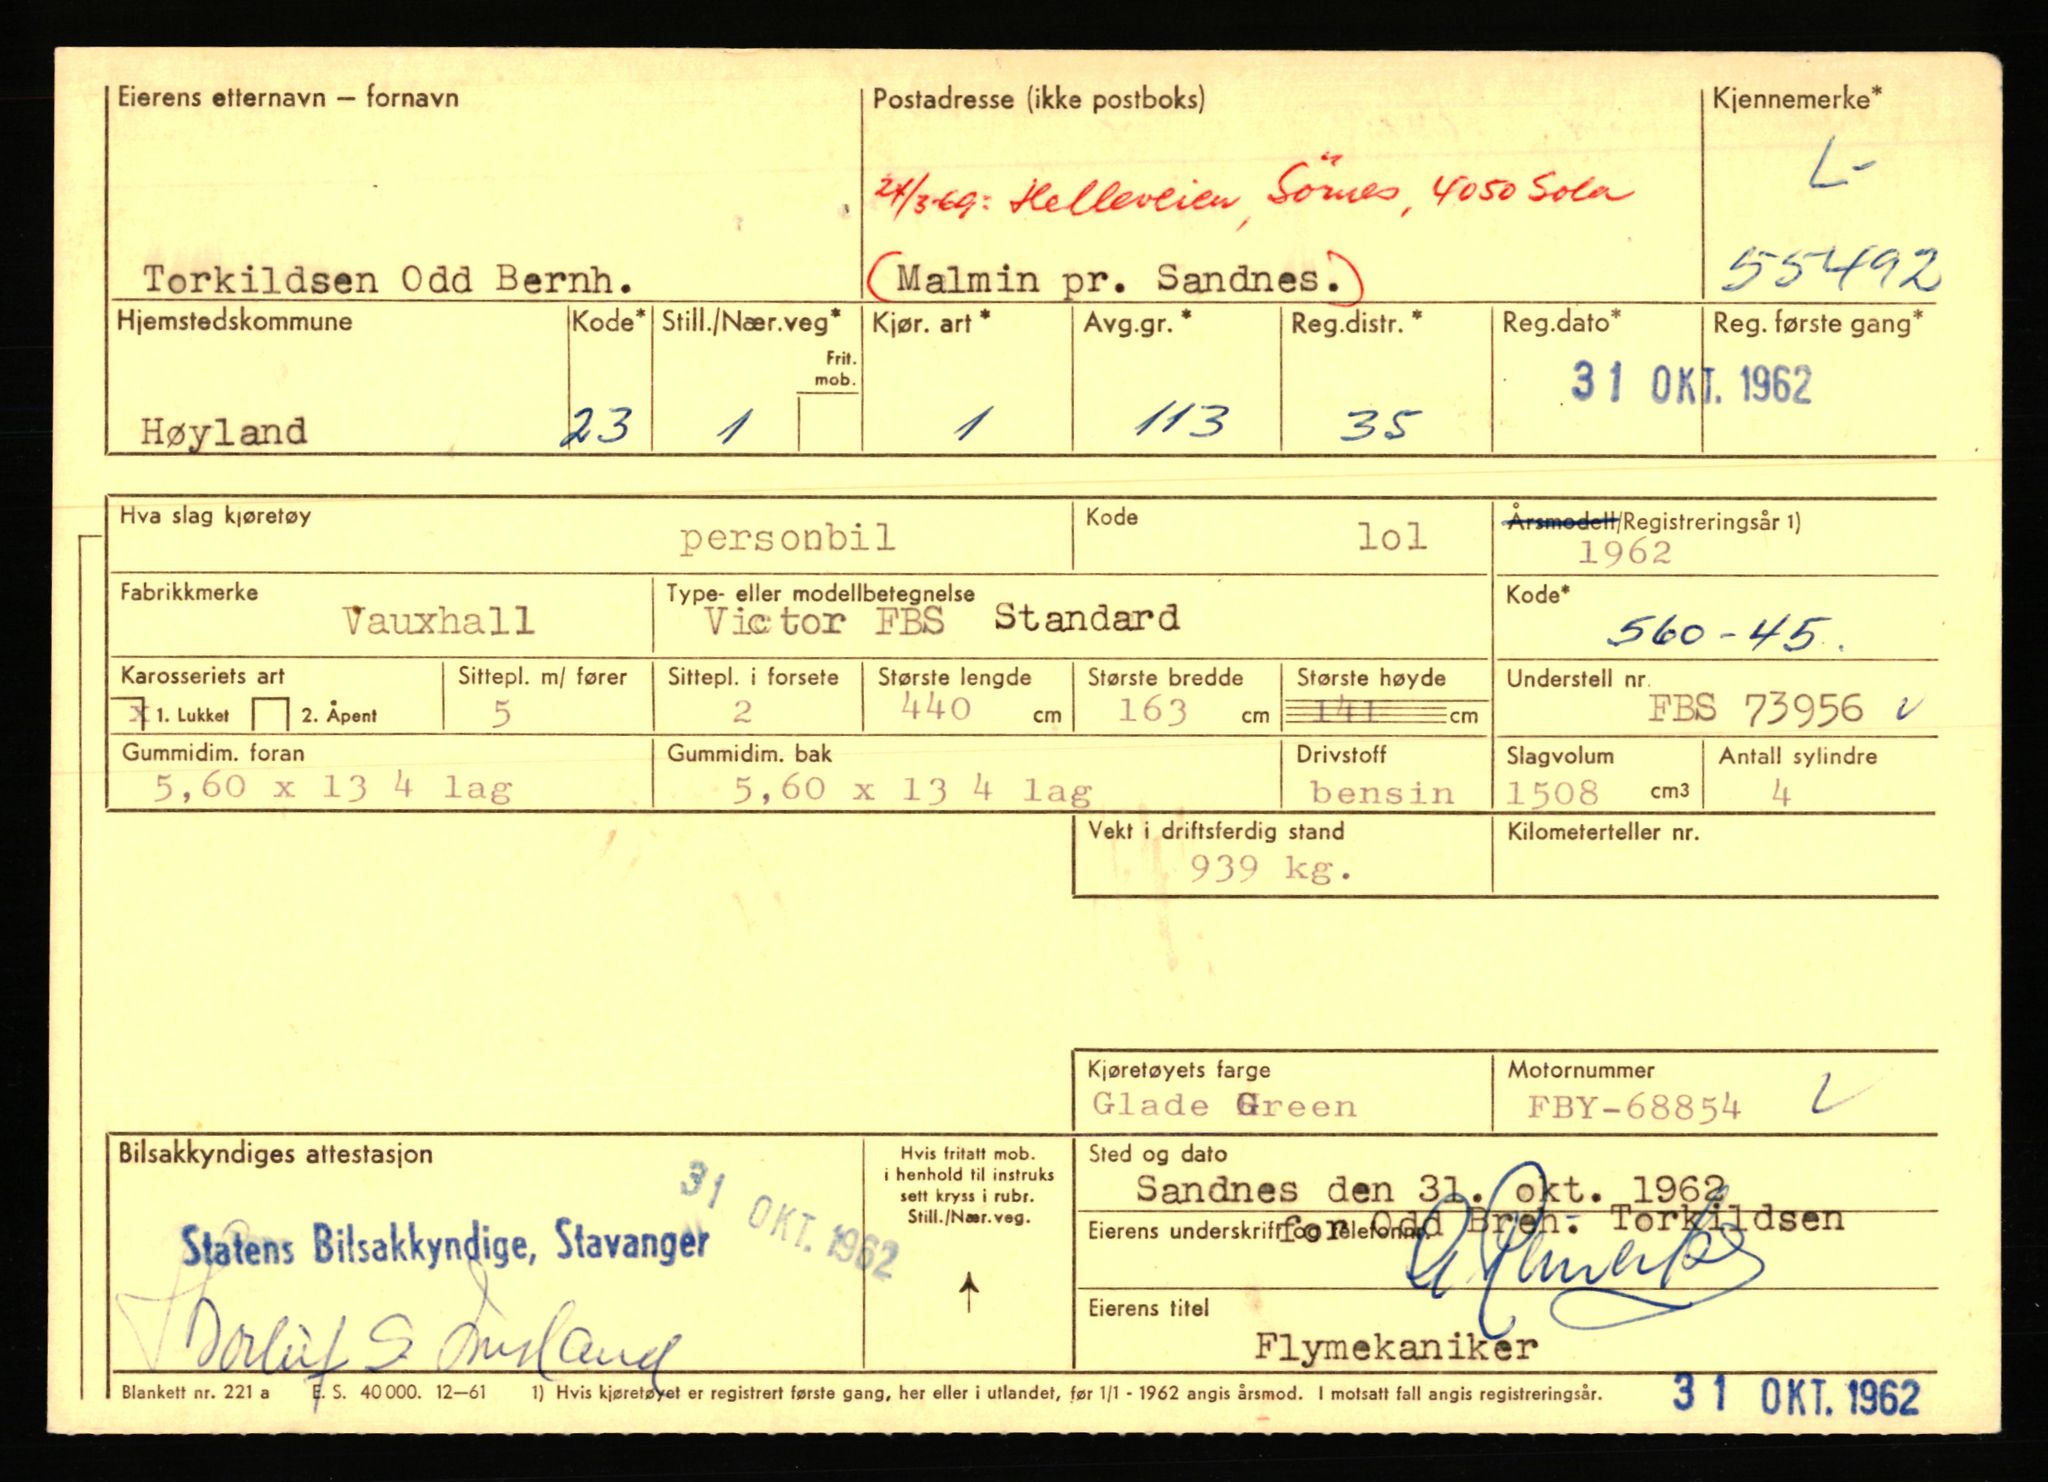 Eierens etternavn – fornavn
Postadresse (ikke postboks)
Kjennemerke*
L-
24/3-69: Helleveien, Sörnes, 4050 Sola
Torkildsen Odd Bernh.
(Malmin pr. Sandnes.)
55492
Hjemstedskommune
Kode*
Still./Nær.veg*
Kjør. art *
Avg.gr. *
Reg.distr. *
Reg.dato*
Reg. første gang*
Frit. mob.
31 OKT. 1962
Høyland
23
1
1
113
35
Hva slag kjøretøy
personbil
Kode
lol
Årsmodell/Registreringsår 1)
1962
Fabrikkmerke
Vauxhall
Type- eller modellbetegnelse
Victor FBS Standard
Kode*
560-45.
Karosseriets art
x 1. Lukket 2. Åpent
Sittepl. m/ fører
5
Sittepl. i forsete
2
Største lengde
440 cm
Største bredde
163 cm
Største høyde
141 cm
Understell nr.
FBS 73956 v
Gummidim. foran
5,60 x 13 4 lag
Gummidim. bak
5,60 x 13 4 lag
Drivstoff
bensin
Slagvolum
1508 cm3
Antall sylindre
4
Vekt i driftsferdig stand
939 kg.
Kilometerteller nr.
Kjøretøyets farge
Glade Green
Motornummer
FBY-68854 v
Bilsakkyndiges attestasjon
31 OKT. 1962
Statens Bilsakkyndige, Stavanger
Hvis fritatt mob.
i henhold til instruks
sett kryss i rubr.
Still./Nær.veg.
Sted og dato
Sandnes den 31. okt. 1962
Eierens underskrift og telefonnr.
for Odd Breh. Torkildsen
Eierens titel
Flymekaniker
Blankett nr. 221 a E. S. 40 000. 12–61 1) Hvis kjøretøyet er registrert første gang, her eller i utlandet, før 1/1 - 1962 angis årsmod. I motsatt fall angis registreringsår.
31 OKT. 1962